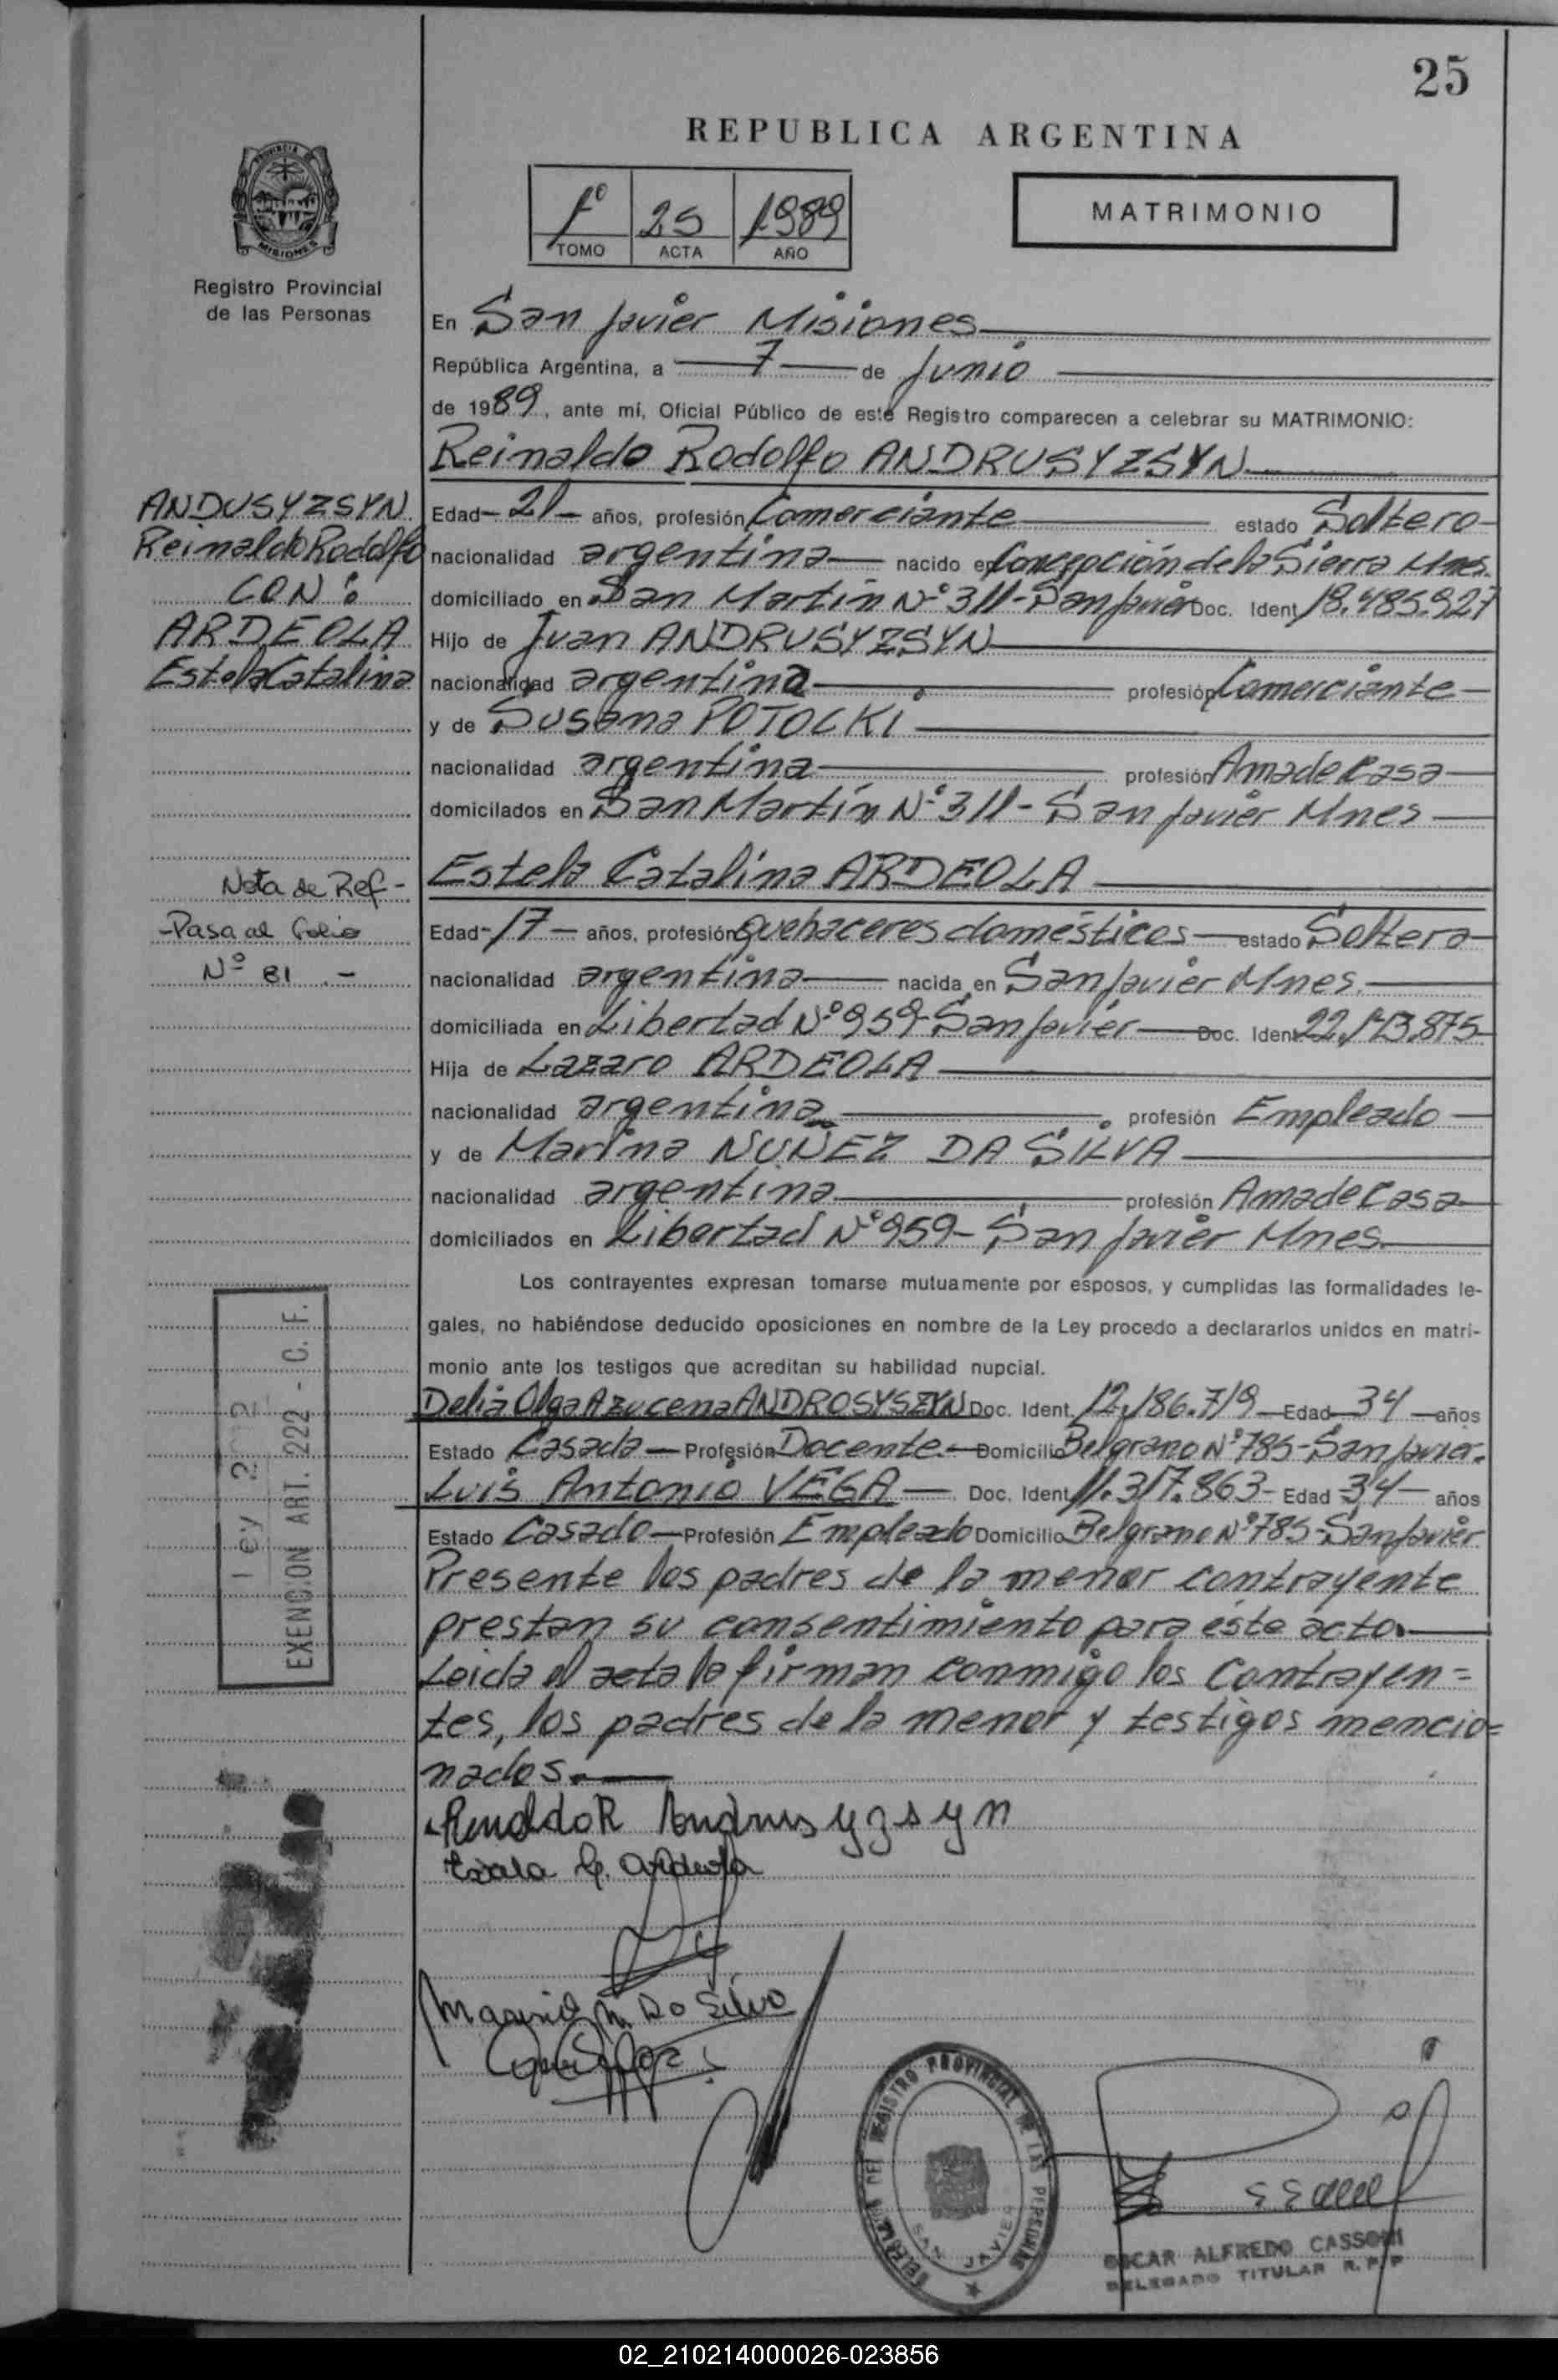 25
REPUBLICA ARGENTINA
1º 25 1989
TOMO ACTA AÑO
MATRIMONIO
PROVINCIA DE
MISIONES
Registro Provincial
de las Personas
En San Javier Misiones
República Argentina, a 7 de Junio
de 1989, ante mí, Oficial Público de este Registro comparecen a celebrar su MATRIMONIO:
Reinaldo Rodolfo ANDRUSYZSYN
ANDUSYZSYN
Reinaldo Rodolfo
CON:
ARDEOLA
Estela Catalina
Edad - 21 - años, profesión Comerciante estado Soltero
nacionalidad argentina nacido en Concepción de la Sierra Mnes.
domiciliado en San Martín Nº 311 - San Javier Doc. Ident. 18.485.927
Hijo de Juan ANDRUSYZSYN
nacionalidad argentina profesión Comerciante
y de Susana POTOCKI
nacionalidad argentina profesión Ama de Casa
domicilados en San Martín Nº 311 - San Javier Mnes
Estela Catalina ARDEOLA
Nota de Ref -
-Pasa al Folio
Nº 81 .-
Edad - 17 - años, profesión quehaceres domésticos estado Soltera
nacionalidad argentina nacida en San Javier Mnes.
domiciliada en Libertad Nº 959 - San Javier Doc. Ident. 22.173.875
Hija de Lazaro ARDEOLA
nacionalidad argentina profesión Empleado
y de Marina NUÑEZ DA SILVA
nacionalidad argentina profesión Ama de Casa
domiciliados en Libertad Nº 959 - San Javier Mnes.
Los contrayentes expresan tomarse mutuamente por esposos, y cumplidas las formalidades le-
gales, no habiéndose deducido oposiciones en nombre de la Ley procedo a declararlos unidos en matri-
monio ante los testigos que acreditan su habilidad nupcial.
Delia Olga Azucena ANDROSYSZYN Doc. Ident. 12.186.719 Edad 34 años
Estado Casada Profesión Docente Domicilio Belgrano Nº 785 - San Javier.
Luis Antonio VEGA Doc. Ident. 11.317.863 - Edad 34 años
Estado Casado Profesión Empleado Domicilio Belgrano Nº 785 - San Javier
Presente los padres de la menor contrayente
prestan su consentimiento para éste acto.
Leida el acta la firman conmigo los contrayen=
tes, los padres de la menor y testigos mencio=
nados.
Ley 2
EXENCION ART. 222 - C. F.
Reinaldo R Andrusyzsyn
Estela C. Ardeola
Marina N. Da Silva
REGISTRO PROVINCIAL DE LAS PERSONAS
SAN JAVIER
OSCAR ALFREDO CASSONI
DELEGADO TITULAR R. P. P
02_210214000026-023856